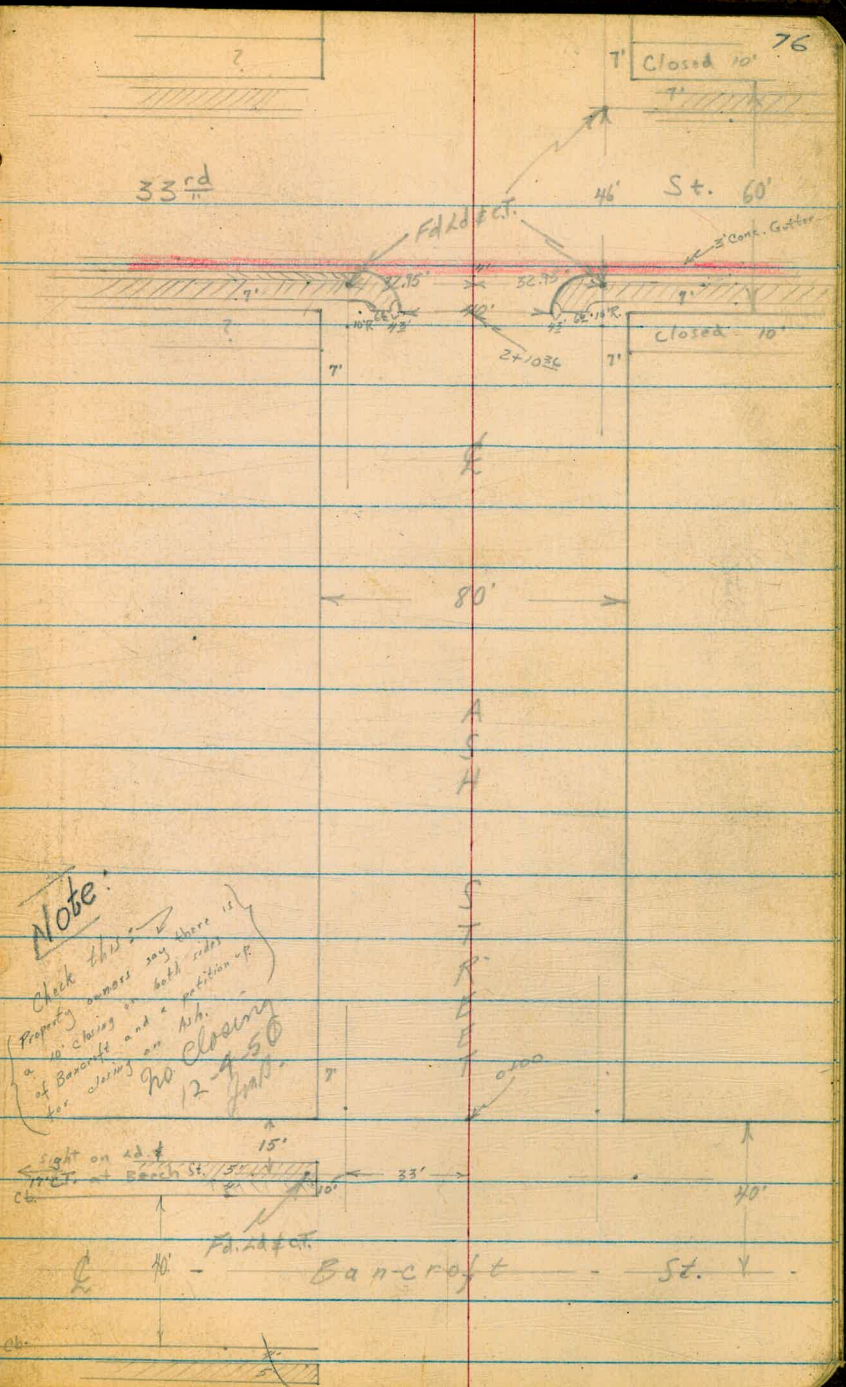 76
?
7' Closed 10'
7'
33rd
46' St. 60'
Fd Ld & C.T.
3' Conc. Gutter
32.95' 32.95'
7' 7'
10'R 10'R.
? Closed 10'
2+10 36
7' 7'
℄
80'
ASH
STREET
Note:
Check this:
Property owners say there is
a 10' closing on both sides
of Bancroft and a petition up
for closing on Ash.
No Closing
12-4-50
7'
0+00
15'
Sight on Ld. &
C.T. at Beech St. 5'
33'
10'
Cb.
40'
Fd. Ld & C.T.
℄ 40' Bancroft St.
Cb.
5'